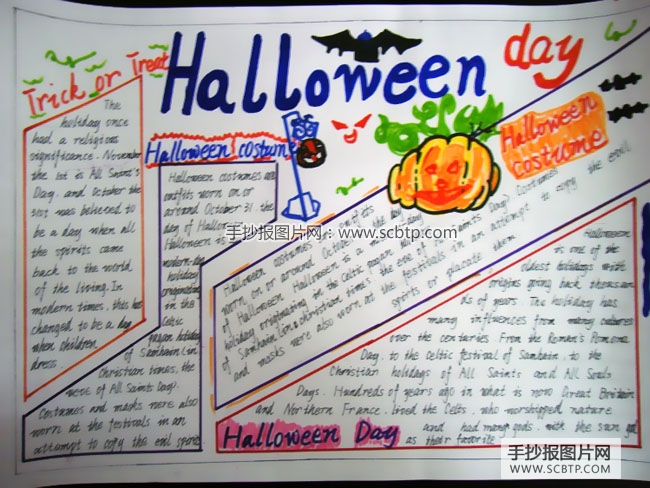 Halloween day
Trick or Treat
The
holiday once
had a religious
significance. November
the 1st is All Saint's
Day. and October the
31st was believed to
be a day when all
the spirits came
back to the world
of the living. In
modern times. this has
changed to be a day
when children
dress.
Halloween costume
Halloween costumes are
outfits worn on or
around October 31. the
day of Halloween
Halloween is
modern-day
holiday
originating
in the
Celtic
pagan holiday
of Samhain (in
Christian times, the
eve of All Saints Day).
Costumes and masks were also
worn at the festivals in an
attempt to copy the evil spirits
Halloween
costume
Halloween costumes outfits
worn on or around October the day
of Halloween Halloween is a modern-day
holiday originating in the Celtic pagan holiday
of Samhain (in christian times the eve of Saints Day) Costumes
and masks were also worn at the festivals in an attempt to copy the evil
spirits or placate them
Halloween
is one of the
oldest holidays with
origins going back thousan
ds of years. The holiday has
many influences from many cultures
over the centuries. From the Roman's Pomona
Day. to the Celtic festival of Samhain. to the
Christian holidays of All Saints and All Souls
Days. Hundreds of years ago in what is now Great Britain
and Northern France. lived the Celts. who worshipped nature
and had many gods. with the sun god
as their favorite
Halloween Day
手抄报图片网：www.scbtp.com
手抄报图片网
WWW.SCBTP.COM